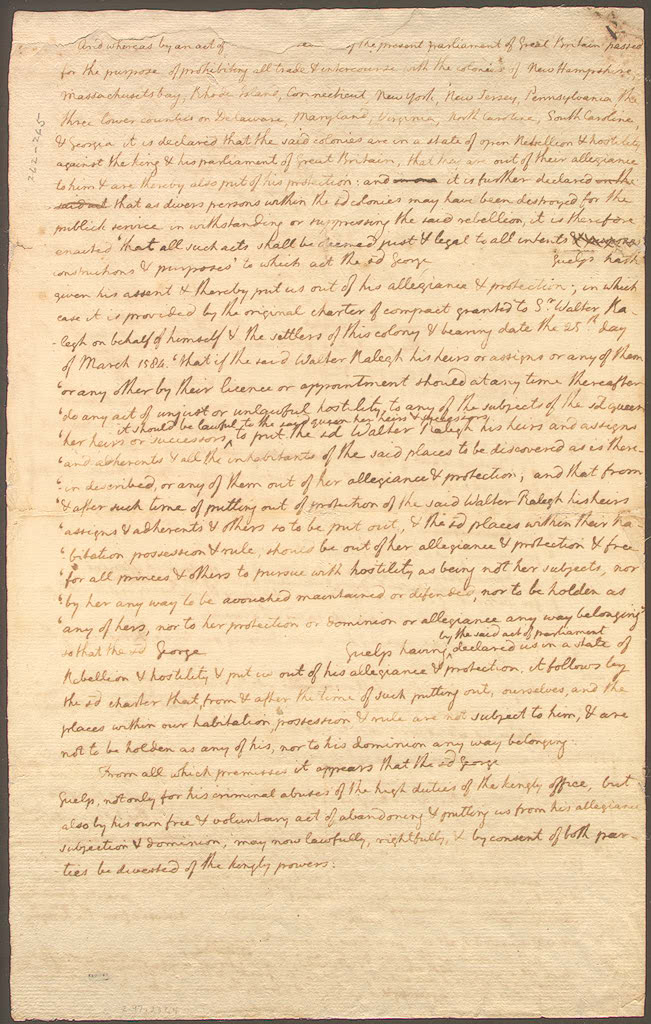 And whereas by an act of the present parliament of Great Britain passed
for the purpose of prohibiting all trade & intercourse with the colonies of New Hampshire,
Massachusetsbay, Rhode island, Connecticut, New York, New Jersey, Pennsylvania the
three lower counties on Delaware, Maryland, Virginia, North Caroline, South Caroline,
& Georgia it is declared that the said colonies are in a state of open Rebellion & hostility
against the king & his parliament of Great Britain, that they are out of their allegiance
to him & are thereby also put out of his protection: and it is further declared on the
that as divers persons within the sd colonies may have been destroyed for the
publick service in withstanding or suppressing the said rebellion, it is therefore
enacted 'that all such acts shall be deemed just & legal to all intents & purposes
constructions & purposes' to which act the sd George Guelps hath
given his assent & thereby put us out of his allegiance & protection; in which
case it is provided by the original charter of compact granted to Sr. Walter Ra-
-legh on behalf of himself & the settlers of this colony & bearing date the 25th day
of March 1584. 'that if the said Walter Ralegh his heirs or assigns or any of them
'or any other by their licence or appointment should at any time thereafter
'do any act of unjust or unlawful hostility, to any of the subjects of the sd queen
it should be lawful to the said queen her heirs & successors
'her heirs or successors, ^ to put the sd Walter Ralegh his heirs and assigns
'and adherents & all the inhabitants of the said places to be discovered as is there-
'in described, or any of them out of her allegiance & protection, and that from
'& after such time of putting out of protection of the said Walter Ralegh his heirs
'assigns & adherents & others so to be put out, & the sd places within their ha-
'bitation possession & rule, should be out of her allegiance & protection & free
'for all princes & others to pursue with hostility as being not her subjects, nor
'by her any way to be avouched maintained or defended, nor to be holden as
'any of hers, nor to her protection or dominion or allegiance any way belonging'
by the said act of parliament
so that the sd George Guelps having ^ declared us in a state of
Rebellion & hostility & put us out of his allegiance & protection, it follows by
the sd charter that, from & after the time of such putting out, ourselves, and the
places within our habitation, possession & rule are not subject to him, & are
not to be holden as any of his, nor to his dominion any way belonging.
From all which premisses it appears that the sd George
Guelps, not only for his criminal abuses of the high duties of the kingly office, but
also by his own free & voluntary act of abandoning & putting us from his allegiance
subjection & dominion, may now lawfully, rightfully, & by consent of both par-
-ties be divested of the kingly powers.
242-245